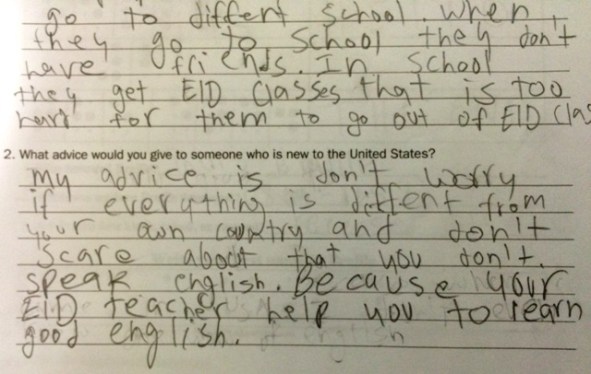 go to differt school. when
they go to school they don't
have friends. In school
they get EID Classes that is too
hart for them to go out of EID Clas
2. What advice would you give to someone who is new to the United States?
my advice is don't worry
if everything is differt from
your own country and don't
scare about that you don't.
speak english. Because your
EID teacher help you to learn
good english.